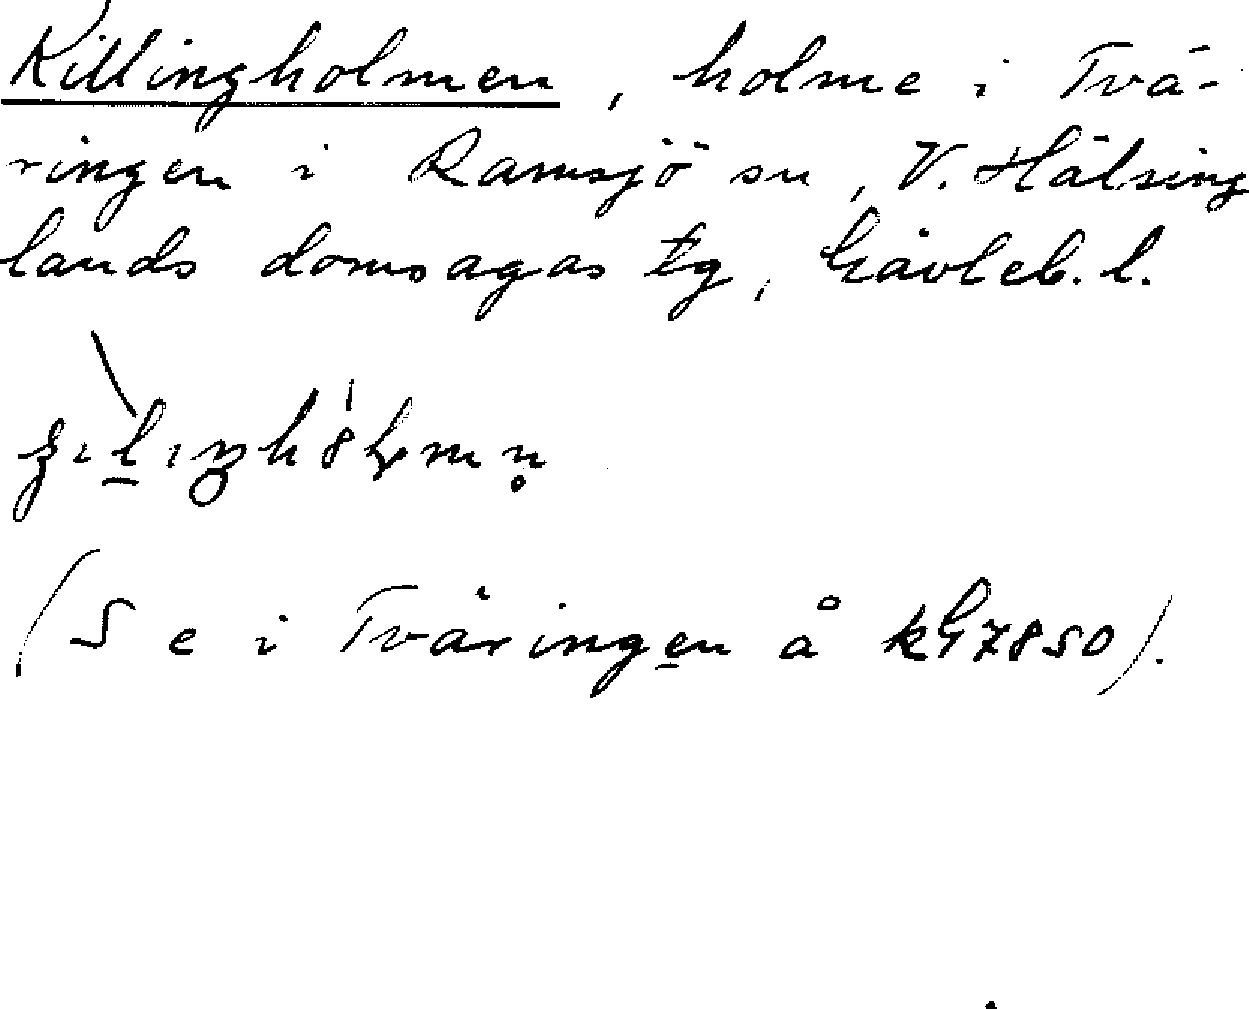 Killingholmen, holme i Tvä-
ringen i Ramsjö sn, V. Hälsing
lands domsagas tg, Gävleb. l.
(S e i Tväringen å kG7850).